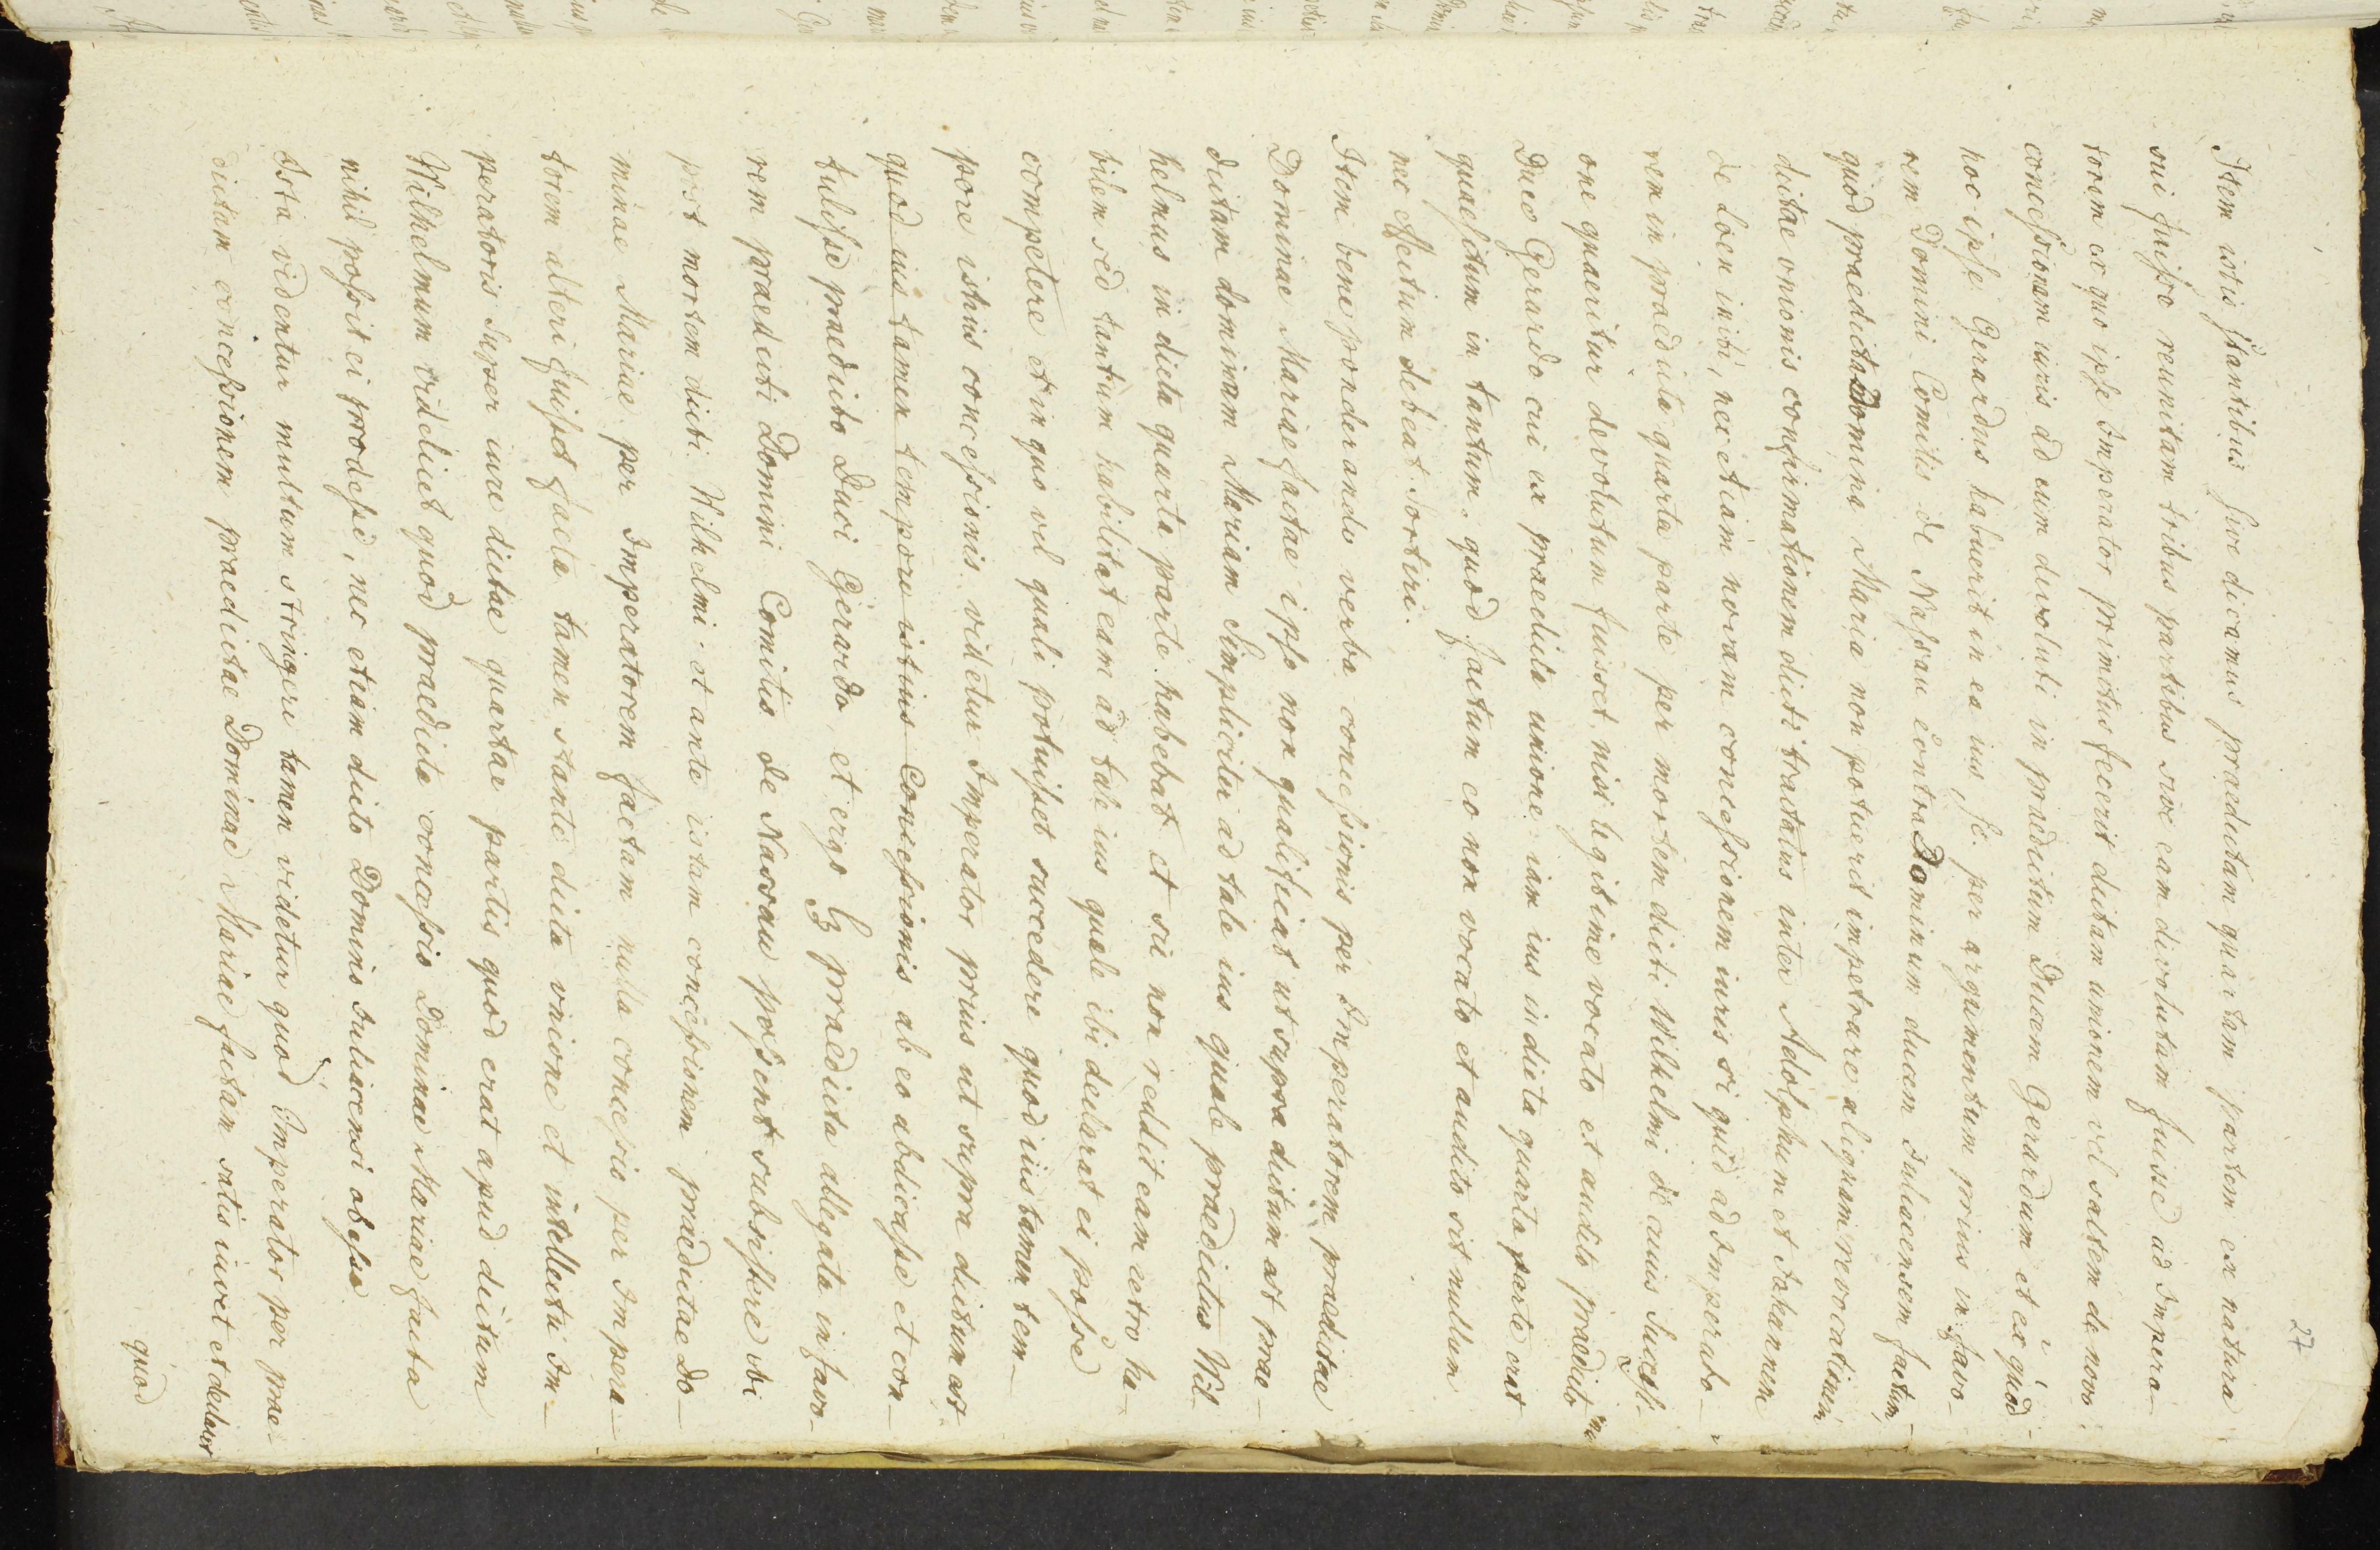 27
Item istis stantibus sive dicamus praedictam quartam partem ex natura
sui fuisse reunitam tribus partibus sive eam divolutam fuisse ad Impera-
torem ex quo ipse Imperator primitus fecerit dictam unionem vel saltem de novo
concessionem iuris ad eum devoluti in praedictum Ducem Gerardum et ex quod
hoc ipse Gerardus habuerit in ea ius se. per argumentum prius in favo-
rem Domini Comitis de Nassau contra Dominum ducem Juliacensem factum,
quod praedicta Domina Maria non potuerit impetrare aliquam revocationem
dictae unionis confirmationem dicti tractatus inter Adolphum et Johannem
de Loen initi, nec etiam novam concessionem iuris si quid ad Imperato-
rem in praedicta quarta parte per mortem dicti Wilhelmi de cuius Success-
one quaeritur devolutum fuisset, nisi legitime vocato et audito praedicto
Duco Gerardo cui ex praedicta unione iam ius in dicta quarta parte erat
quaesitum in tantum. quod factum eo non vocato et audito sit nullum
nec effectum debeat sortiri.
Item bene ponderando verba concessionis per Imperatorem praedictae
Dominae Mariae factae ipse non qualificat ut supra dictum ast prae-
dictam dominam Mariam simpliciter ad tale ius quale praedictus Wil-
helmus in dicta quarta parte habebat et sic non reddit eam retro ha-
bilem sed tantum habilitat eam ad tale ius quale ibi declarat ei posse
competere et in quo vel quali potuisset succedere quod ius tamen tem-
pore istius concessionis videtur Imperator prius ut supra dictum ast
quod ius tamen tempore istius Concessionis ab eo abdicasse et con-
tulisse praedicto Duci Gerardo et ergo praedicta allegata in favo-
rem praedicti Domini Comitis de Nassau possent subsistere ubi
post mortem dicti Wilhelmi et ante istam concessionem praedictae Do-
minae Mariae per Imperatorem factam nulla concessio per Impera-
torem alteri fuisset facta tamen stante dicta unione et intellectu Im-
peratoris super iure dictae quartae partis quod erat apud dictum
Wilhelmum videlicet quod praedicta concessio Dominae Mariae facta
nihil possit ei prodesse, nec etiam dicto Domino Juliacensi obesse
Ista videntur multum stringere tamen videtur quod Imperator per prae-
dictam concessionem praedictae Dominae Mariae factam satis iuvet et declarat
quod